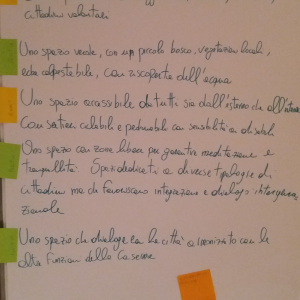 cittadini volontari
Uno spazio verde, con un piccolo bosco, vegetazione locale,
erba calpestabile, con riscoperta dell'acqua
Uno spazio accessibile da tutti sia dall'esterno che all'interno
Con sentieri ciclabili e pedonabili con sensibilità ai disabili
Uno spazio con zone libere per garantire meditazione e
tranquillità Spazi dedicati a diverse tipologie di
cittadini ma che favoriscano integrazione e dialogo intergenera
zionale
Uno spazio che dialoga con la città armonizzato con le
altre funzioni della Caserma